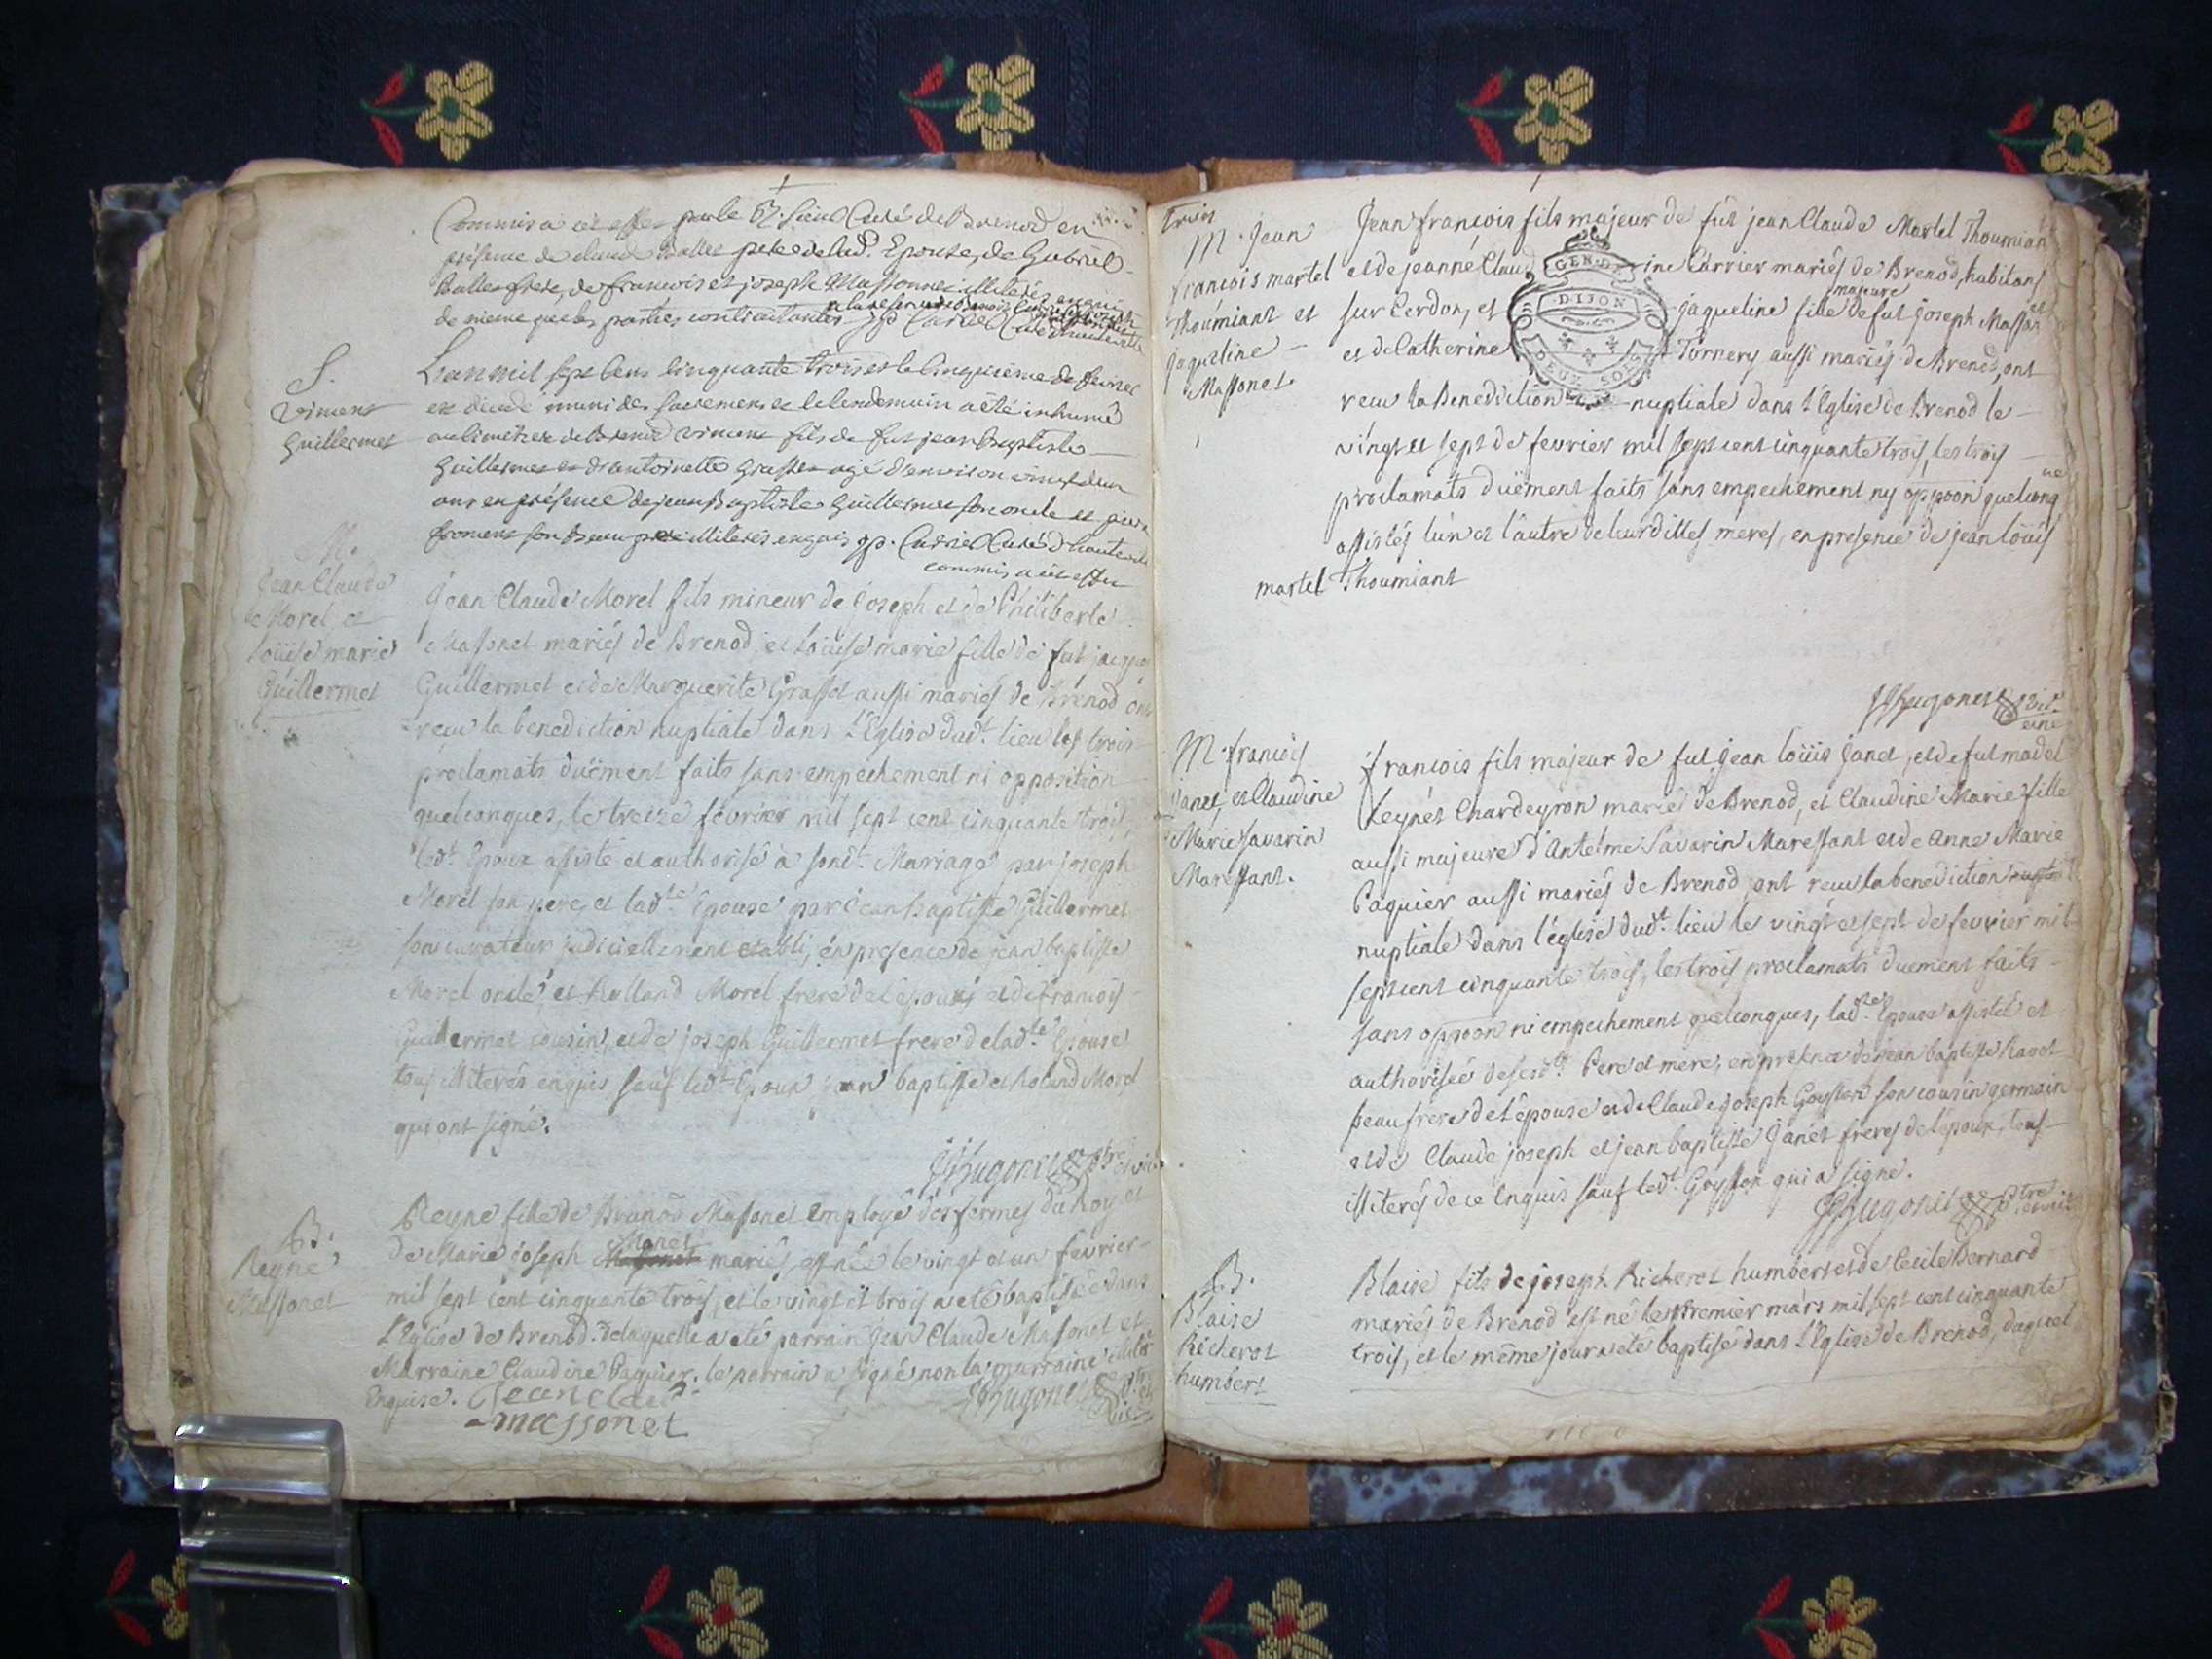 Commis a cet effet par le Sr. Sieur Curé de Brenod en
présence de Claude Balles pere de lad. Epouse, de Gabriel
Balles frere, de francois et joseph Massonnet illiterés enquis
de meme que les parties contractantes
S.
Vincent
Guillermet
L'an mil sept cens cinquante trois et le cinquieme de fevrier
est décédé muni des sacremens et le lendemain a été inhumé
au cimetiere de Brenod vincent fils de fut jean Baptiste
Guillermet et d'antoinette Grasset agé d'environ vingt deux
ans en présence de jean Baptiste Guillermet son oncle et pierre
froment son Beau pere illiterés enquis jp. Carrier Curé d'hauteville
commis a cet effet
M.
Jean Claude
Morel, et
Loüise marie
Guillermet
Jean Claude Morel fils mineur de Joseph et de Philiberte
Massonet mariés de Brenod, et Loüise marie fille de fut jacques
Guillermet et de Marguerite Grasset aussi mariés de Brenod ont
recu la benediction nuptiale dans L'Eglise dudt. lieu les trois
proclamats duëment faits sans empechement ni opposition
quelconques, le treize fevrier mil sept cent cinquante trois,
ledt. Epoux assisté et authorisé à sondt. Mariage par joseph
Morel son pere, et ladte Epouse par Jean baptiste Guillermet
son curateur judiciellement etabli, en presence de jean baptiste
Morel oncle, et Rolland Morel frere de l'epoux, et de francois
Guillermet cousin, et de joseph Guillermet frere de ladte Epouse
tous illiterés enquis sauf ledt Epoux jean baptiste et Roland Morel
qui ont signé.
JJHugonet ptre et vic
B.
Reyne
Massonet
Reyne fille de Brunod Massonet Employé des fermes du Roy et
de Marie Joseph Monet mariés, est née le vingt et un fevrier
mil sept cent cinquante trois, et le vingt et trois a eté baptisée dans
L'Eglise de Brenod. Delaquelle a eté parrain Jean Claude Massonet et
Marraine Claudine Paquier. le parrain a signé non la marraine illiteré
Enquise. Jean claude
massonet
JJHugonet ptre et vic
trois
M. Jean
francois martel
Thoumiant et
jaqueline
Massonet.
Jean francois fils majeur de fût jean Claude Martel Thoumiant
et de jeanne Claudine Carrier mariés de Brenod, habitans
GEN. DE
DIJON
DEUX SOLS
majeure
sur Cerdon, et jaqueline fille de fut joseph Massonet
et de Catherine Tornery aussi mariés de Brenod, ont
recu la Benediction nuptiale dans L'Eglise de Brenod le
vingt et sept de fevrier mil sept cent cinquante trois, les trois
proclamats duëment faits sans empechement ny oppoon quelconque
assistés l'un et l'autre de leursdittes meres, en presence de jean loüis
martel Thoumiant
JJHugonet vic
M. francois
Janet, et Claudine
Marie Savarin
Maressant.
francois fils majeur de fut jean loüis Janet, et de fut madel
Reynét Chardeyron mariés de Brenod, et Claudine Marie fille
aussi majeure d'Antelme Savarin Maressant et de Anne Marie
Paquier aussi mariés de Brenod, ont recu la benediction
nuptiale dans l'église dudt. lieu le vingt et sept de fevrier mil
sept cent cinquante trois, les trois proclamats duement faits
sans oppoon ni empechement quelconques, ladte Epouse assistée et
authorisée de sesdt Pere et mere, en presence de jean baptiste Ravot
beau frere de l'épouse et de Claude joseph Goyffon son cousin germain
et de Claude joseph et jean baptiste Janet freres de l'époux, tous
illiterés de ce Enquis sauf ledt. Goyffon qui a signé.
JJHugonet ptre et vic
B.
Blaise
Rickerot
humbert
Blaise fils de joseph Rickerot humbert et de Cecile Bernard
mariés de Brenod est né le premier mars mil sept cent cinquante
trois, et le même jour a eté baptisé dans L'Eglise de Brenod, duquel